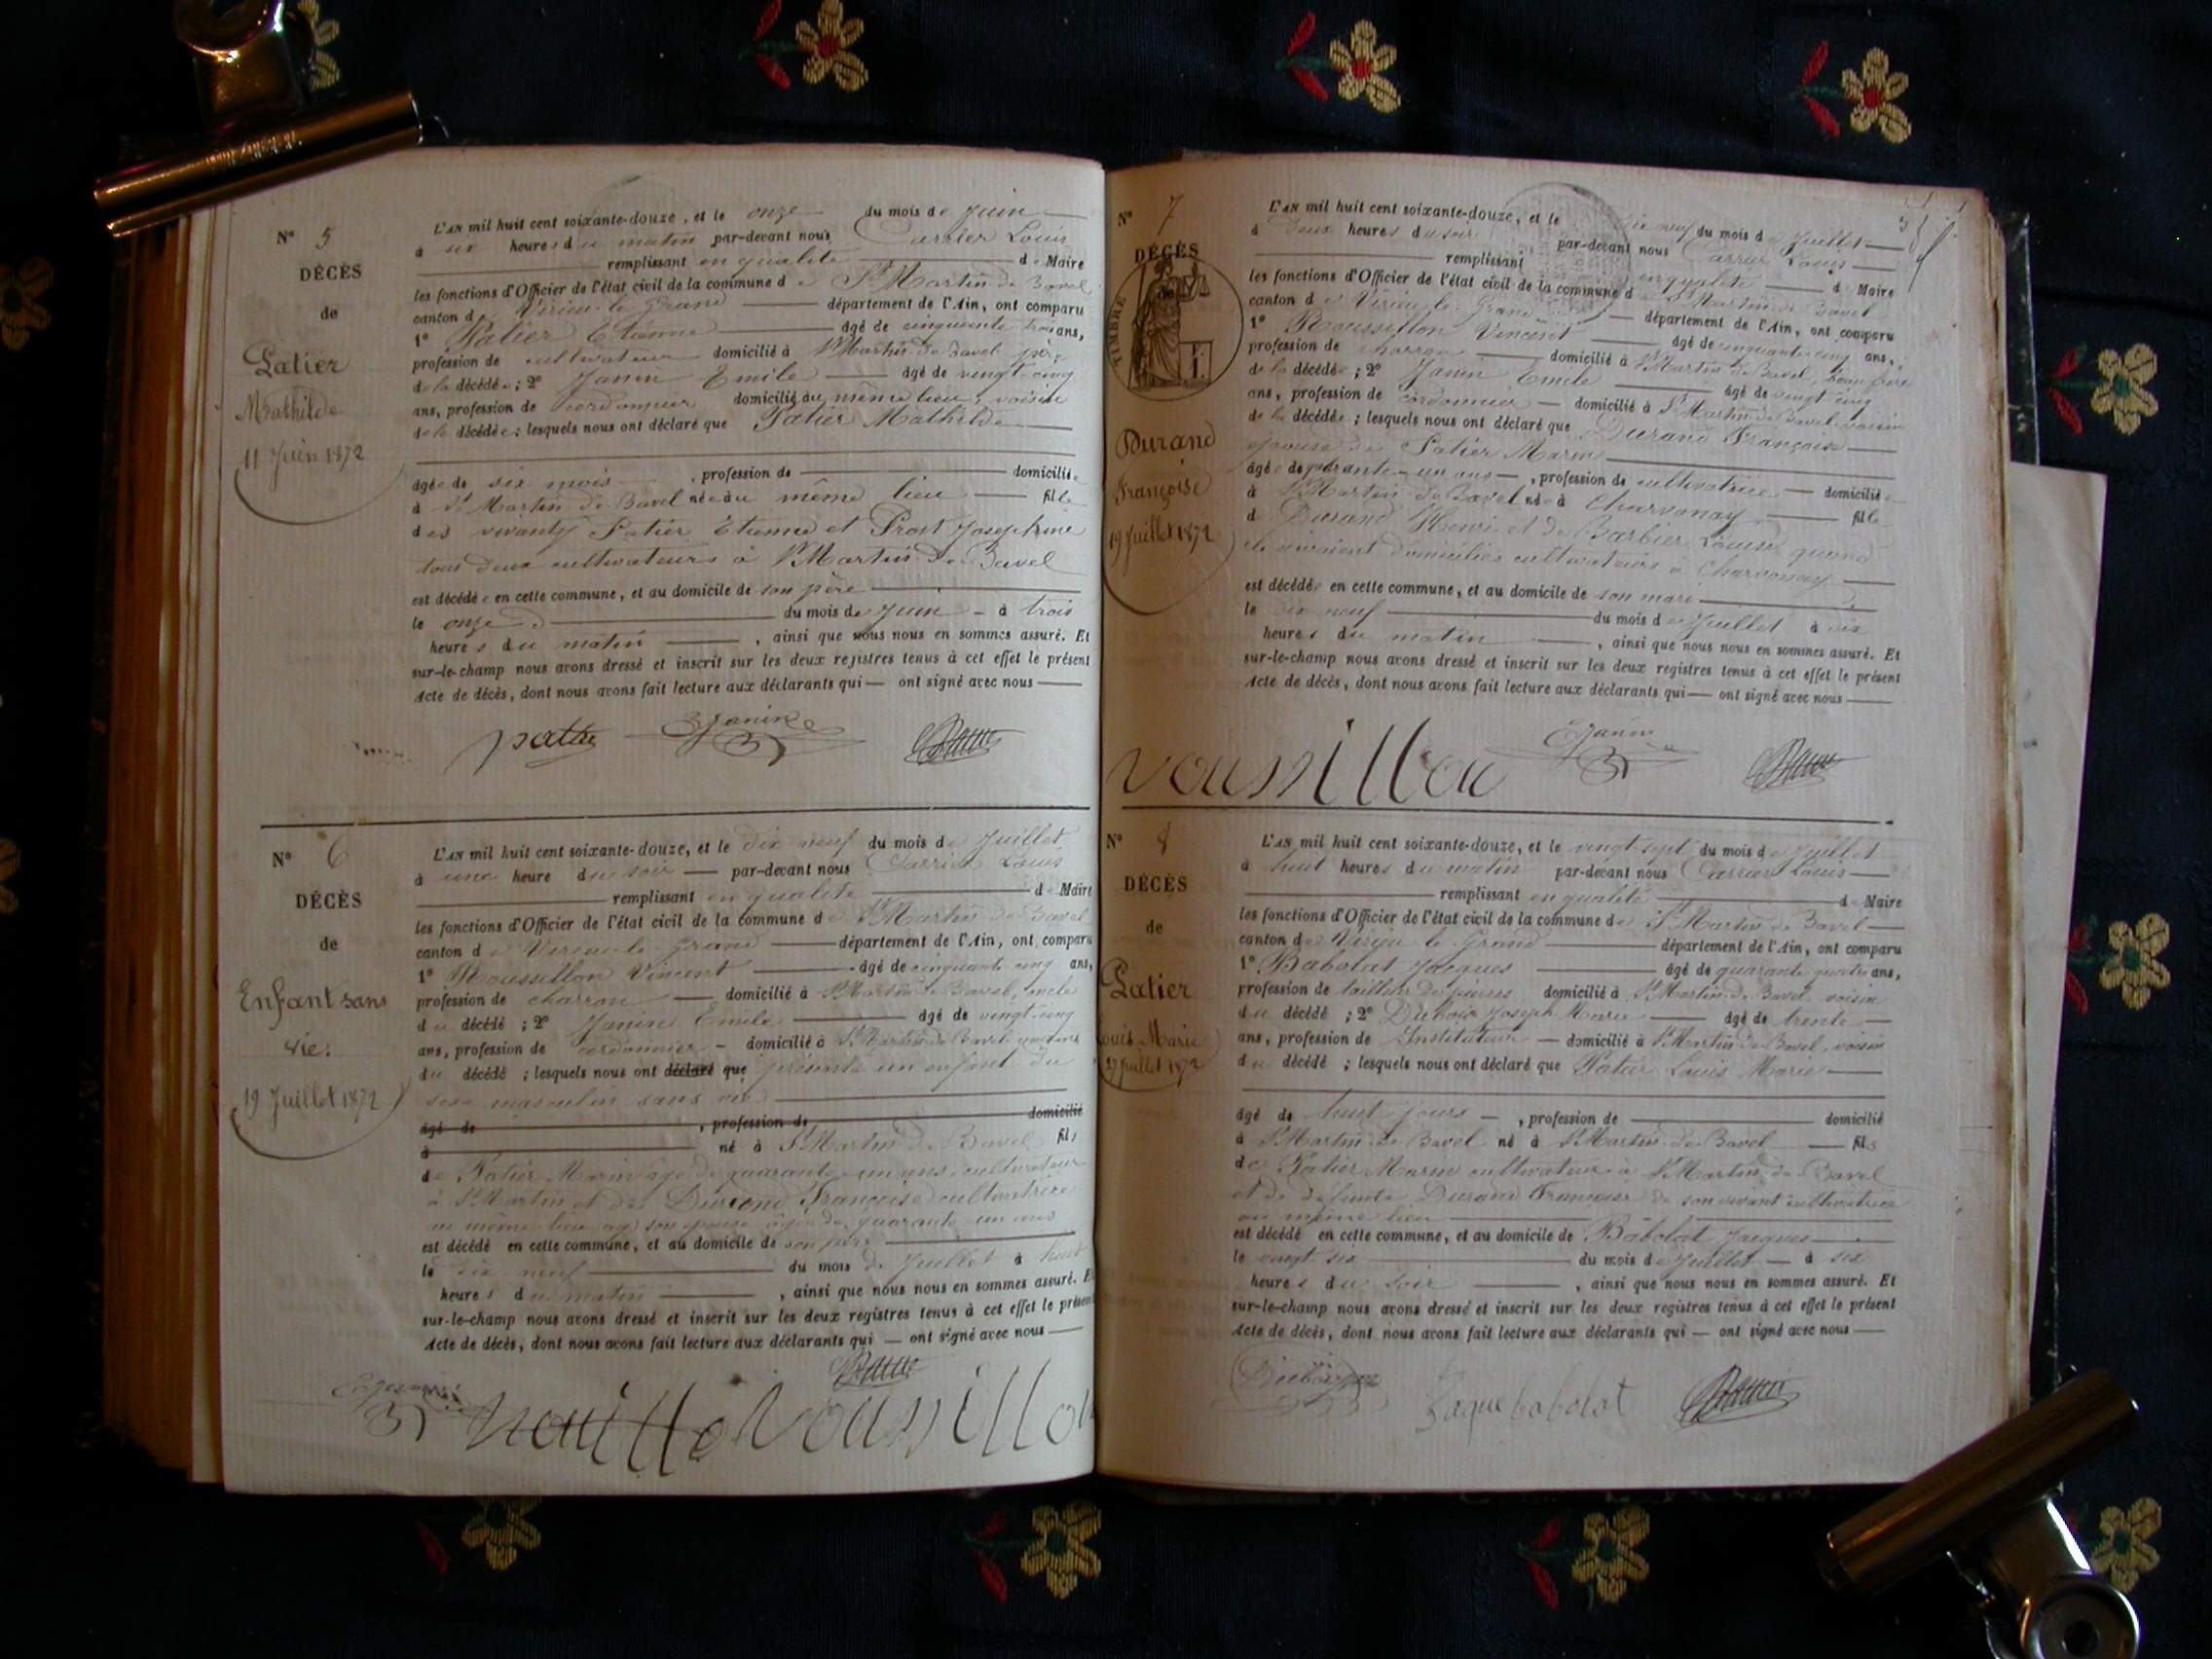 N° 5
DÉCÈS
de
Patier
Mathilde
11 Juin 1872
L'AN mil huit cent soixante-douze, et le onze du mois de Juin
à six heures du matin par-devant nous Carrier Louis
remplissant en qualité de Maire
les fonctions d'Officier de l'état civil de la commune de St Martin de Bavel
canton de Virieu-le-Grand département de l'Ain, ont comparu
1° Patier Etienne âgé de cinquante trois ans,
profession de cultivateur domicilié à St Martin de Bavel père
de la décédée ; 2° Janin Emile âgé de vingt cinq
ans, profession de cordonnier domicilié au même lieu, voisin
de la décédée ; lesquels nous ont déclaré que Patier Mathilde
âgée de six mois , profession de domiciliée
à St Martin de Bavel née au même lieu fille
des vivants Patier Etienne et Prost Josephine
tous deux cultivateurs à St Martin de Bavel
est décédée en cette commune, et au domicile de son père
le onze du mois de Juin à trois
heures du matin , ainsi que nous nous en sommes assuré. Et
sur-le-champ nous avons dressé et inscrit sur les deux registres tenus à cet effet le présent
Acte de décès, dont nous avons fait lecture aux déclarants qui — ont signé avec nous
patier EJanin
N° 6
DÉCÈS
de
Enfant sans
vie.
19 Juillet 1872
L'AN mil huit cent soixante-douze, et le dix neuf du mois de Juillet
à une heure du soir par-devant nous Carrier Louis
remplissant en qualité de Maire
les fonctions d'Officier de l'état civil de la commune de St Martin de Bavel
canton de Virieu-le-Grand département de l'Ain, ont comparu
1° Roussillon Vincent âgé de cinquante cinq ans,
profession de charron domicilié à St Martin de Bavel, oncle
du décédé ; 2° Janin Emile âgé de vingt cinq
ans, profession de cordonnier domicilié à St Martin de Bavel
du décédé ; lesquels nous ont déclaré que présenté un enfant du
sexe masculin sans vie
âgé de , profession de domicilié
à né à St Martin de Bavel fils
de Patier Marin âgé de quarante un ans, cultivateur
à St Martin et de Durand Françoise cultivatrice
au même lieu son épouse âgée de quarante un ans
est décédé en cette commune, et au domicile de son père
le dix neuf du mois de Juillet à huit
heures du matin , ainsi que nous nous en sommes assuré. Et
sur-le-champ nous avons dressé et inscrit sur les deux registres tenus à cet effet le présent
Acte de décès, dont nous avons fait lecture aux déclarants qui — ont signé avec nous
roussillon
N° 7
DÉCÈS
de
TIMBRE
1 F.
Durand
Françoise
19 Juillet 1872
L'AN mil huit cent soixante-douze, et le dix neuf du mois de Juillet
à deux heures du soir par-devant nous Carrier Louis
remplissant en qualité de Maire
les fonctions d'Officier de l'état civil de la commune de St Martin de Bavel
canton de Virieu-le-Grand département de l'Ain, ont comparu
1° Roussillon Vincent âgé de cinquante cinq ans,
profession de charron domicilié à St Martin de Bavel, beau frère
de la décédée ; 2° Janin Emile âgé de vingt cinq
ans, profession de cordonnier domicilié à St Martin de Bavel voisin
de la décédée ; lesquels nous ont déclaré que Durand Françoise
épouse de Patier Marin
âgée de quarante-un ans , profession de cultivatrice domiciliée
à St Martin de Bavel née à Charvonay fille
de Durand Henri et de Barbier Louise quand
ils vivaient domiciliés cultivateurs à Charvonay
est décédée en cette commune, et au domicile de son mari
le dix neuf du mois de Juillet à dix
heures du matin , ainsi que nous nous en sommes assuré. Et
sur-le-champ nous avons dressé et inscrit sur les deux registres tenus à cet effet le présent
Acte de décès, dont nous avons fait lecture aux déclarants qui — ont signé avec nous
roussillon EJanin
N° 8
DÉCÈS
de
Patier
Louis Marie
27 Juillet 1872
L'AN mil huit cent soixante-douze, et le vingt sept du mois de Juillet
à huit heures du matin par-devant nous Carrier Louis
remplissant en qualité de Maire
les fonctions d'Officier de l'état civil de la commune de St Martin de Bavel
canton de Virieu le Grand département de l'Ain, ont comparu
1° Babolat Jacques âgé de quarante quatre ans,
profession de tailleur de pierres domicilié à St Martin de Bavel voisin
du décédé ; 2° Dubois Joseph Marie âgé de trente
ans, profession de Instituteur domicilié à St Martin de Bavel, voisin
du décédé ; lesquels nous ont déclaré que Patier Louis Marie
âgé de huit jours , profession de domicilié
à St Martin de Bavel né à St Martin de Bavel fils
de Patier Marin cultivateur à St Martin de Bavel
et de défunte Durand Françoise de son vivant cultivatrice
au même lieu
est décédé en cette commune, et au domicile de Babolat Jacques
le vingt six du mois de Juillet à six
heures du soir , ainsi que nous nous en sommes assuré. Et
sur-le-champ nous avons dressé et inscrit sur les deux registres tenus à cet effet le présent
Acte de décès, dont nous avons fait lecture aux déclarants qui — ont signé avec nous
Jaque babolat